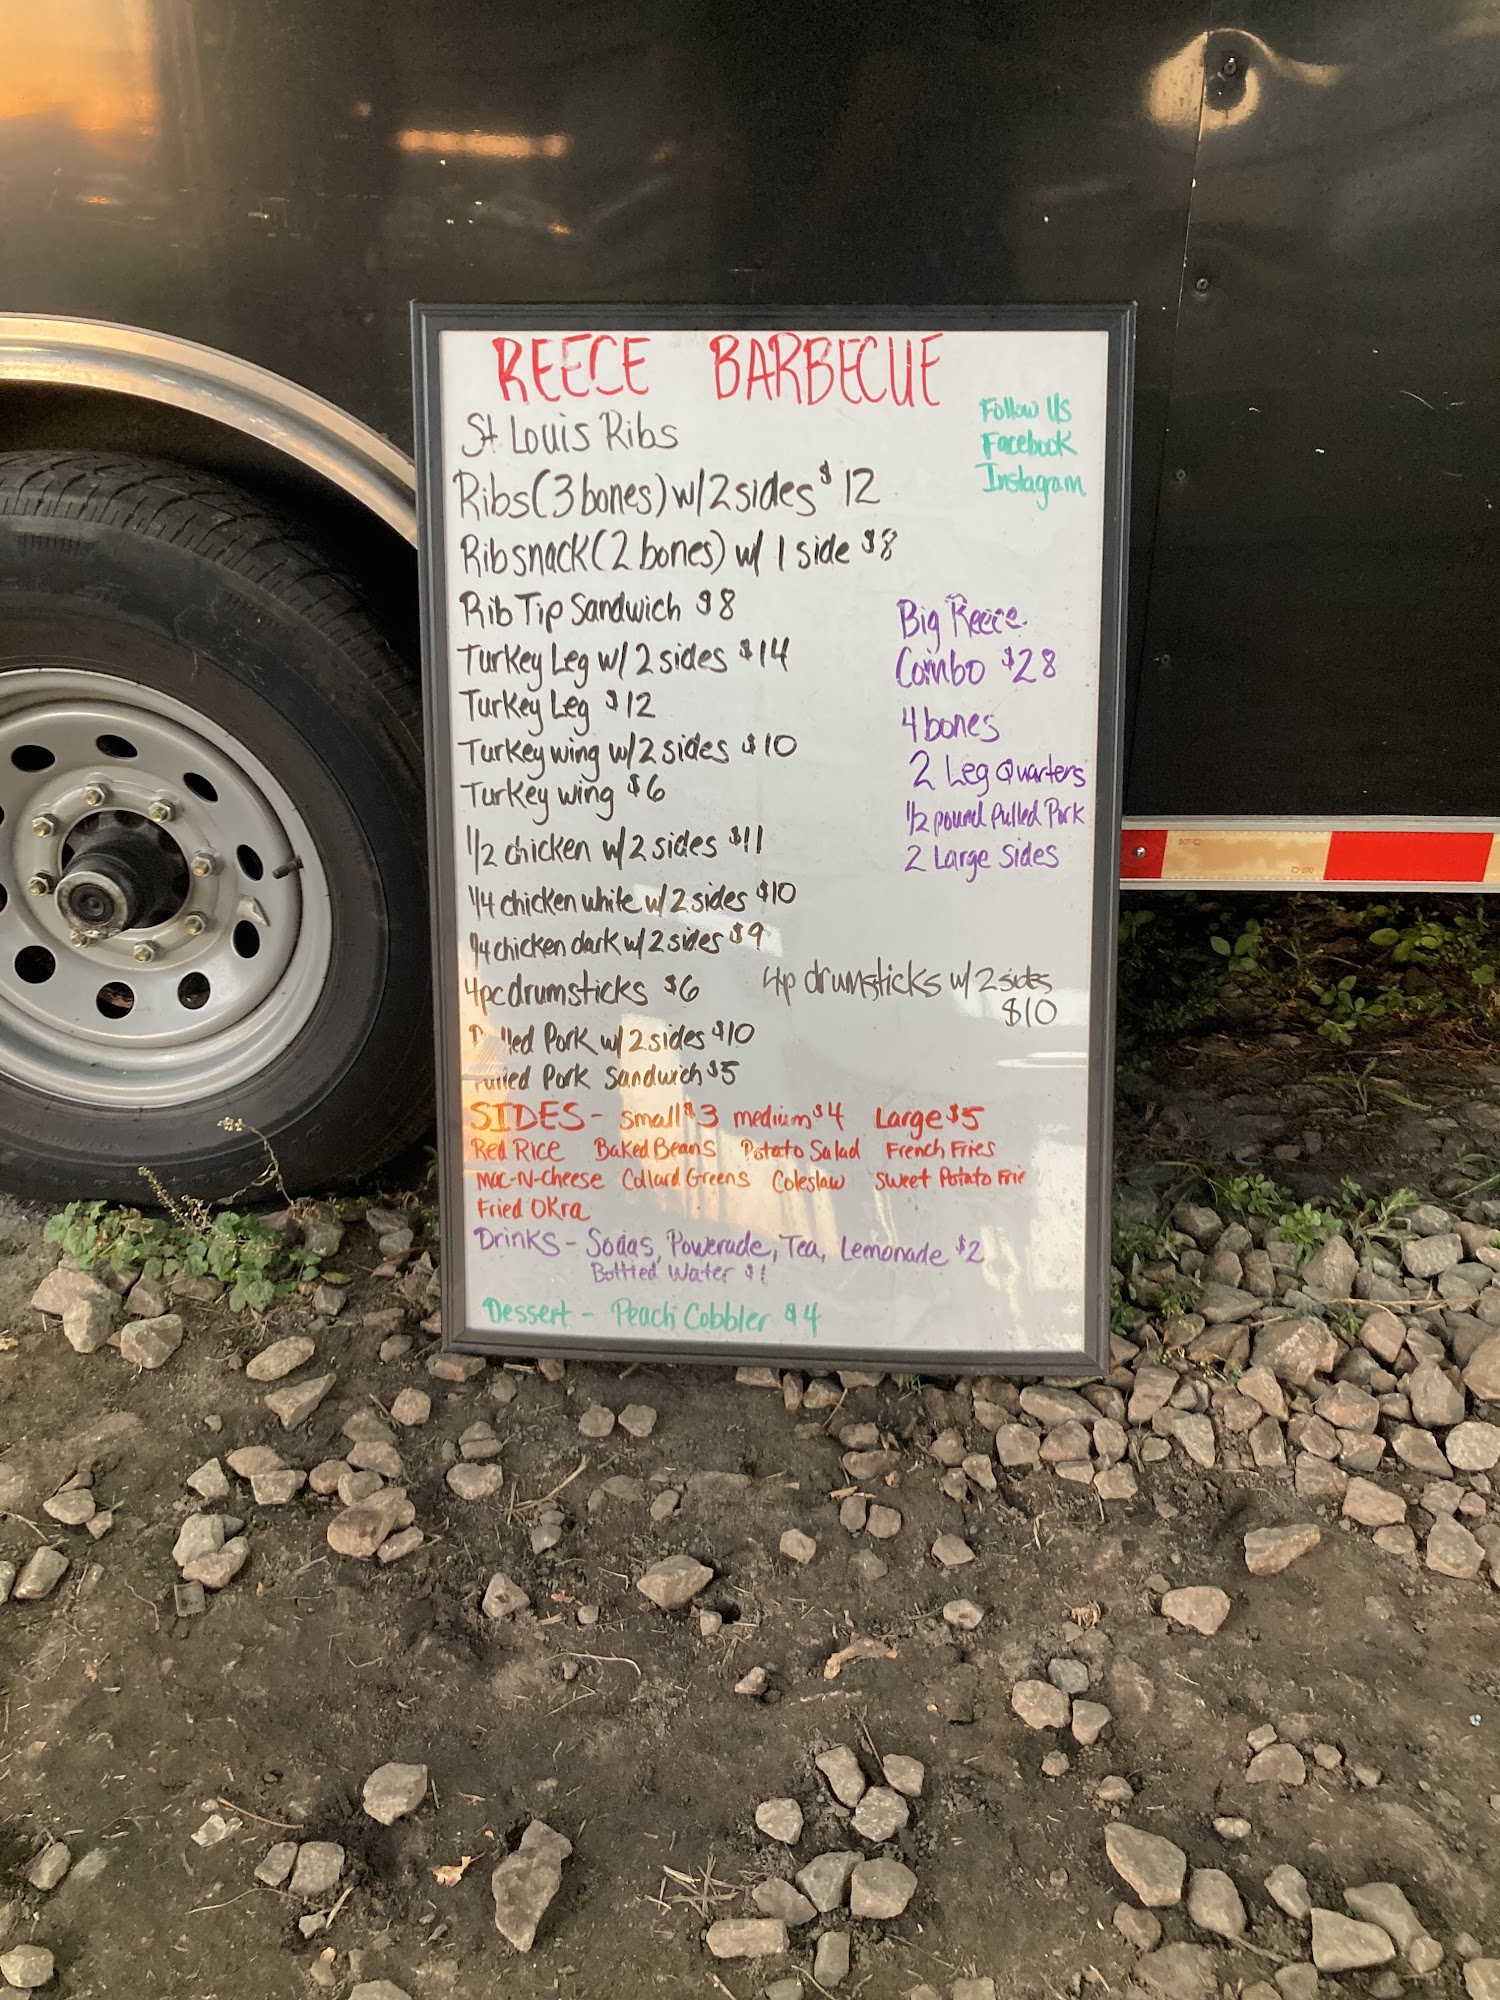 REECE BARBECUE
Follow Us
Facebook
Instagram
St Louis Ribs
Ribs (3 bones) w/ 2 sides $12
Rib snack (2 bones) w/ 1 side $8
Rib Tip Sandwich $8
Turkey Leg w/ 2 sides $14
Turkey Leg $12
Turkey wing w/ 2 sides $10
Turkey wing $6
1/2 chicken w/ 2 sides $11
1/4 chicken white w/ 2 sides $10
1/4 chicken dark w/ 2 sides $9
4pc drumsticks $6
4p drumsticks w/ 2 sides
$10
Pulled Pork w/ 2 sides $10
Pulled Pork Sandwich $5
Big Reece
Combo $28
4 bones
2 Leg Quarters
1/2 pound Pulled Pork
2 Large Sides
SIDES - small $3 medium $4 Large $5
Red RICE Baked Beans Potato Salad French Fries
Mac-N-Cheese Collard Greens Coleslaw Sweet Potato Frie
Fried Okra
Drinks - Sodas, Powerade, Tea, Lemonade $2
Bottled Water $1
Dessert - Peach Cobbler $4